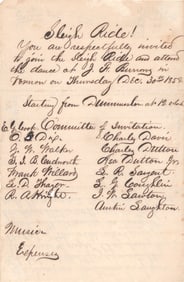 Sleigh Ride!
You are respectfully invited
to join the Sleigh Ride and attend
the dance at J. F. Burrows in
Vernon on Thursday Dec. 30th 1858.
Starting from at 12 o'clock
Committee of Invitation.
Charley Davis
J. W. Walker Charley Dutton
Geo Dutton Jr.
Frank Willard S. R. Sargent
S. D. Thayer S. J. Coughlin
R. A. Wright J. W. Lawton
Austin Laughton
Music
Expenses